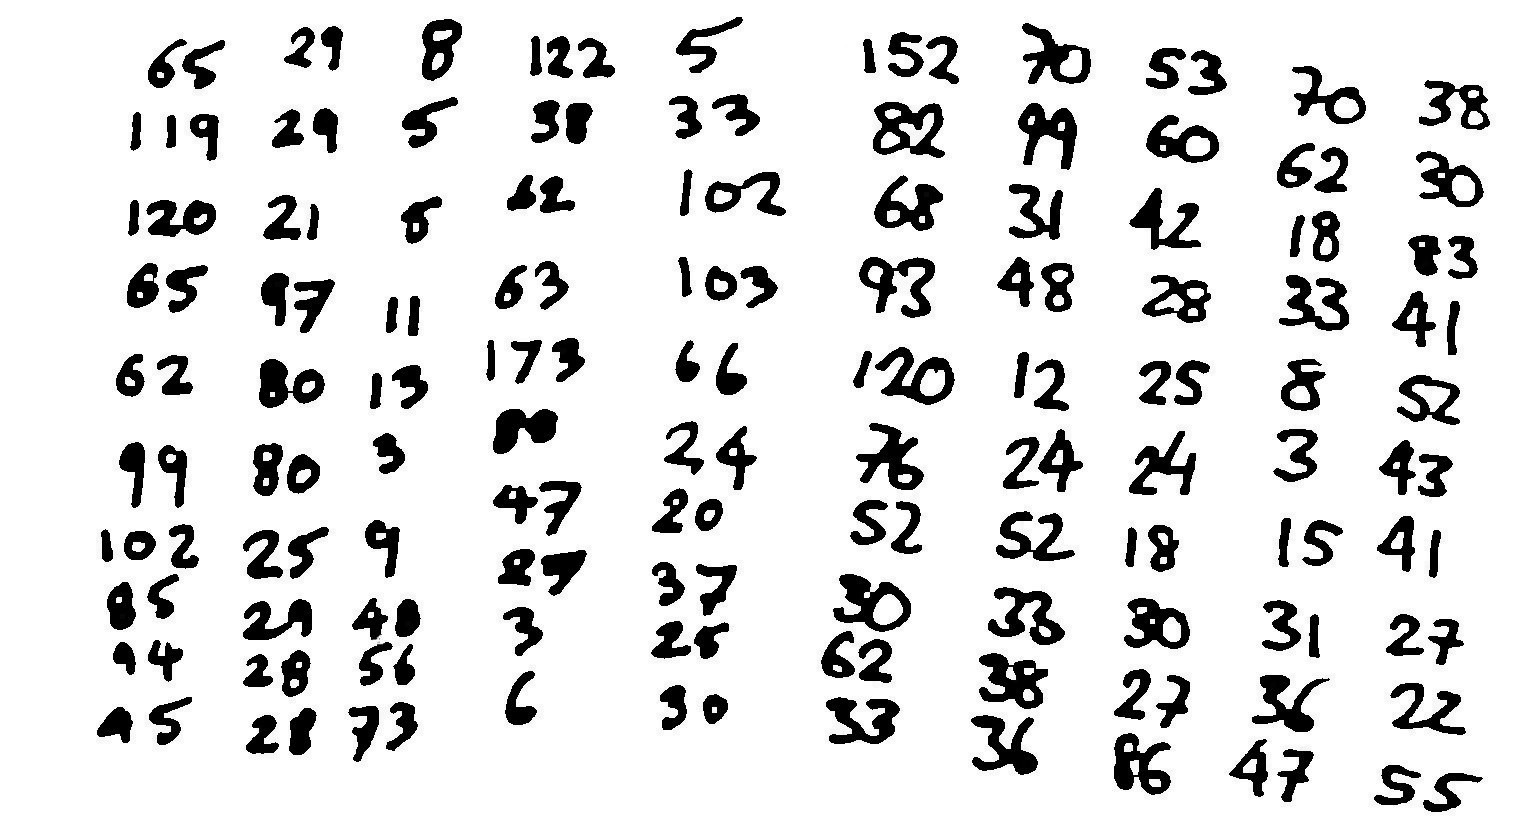 65 29 8 122 5 152 70 53 70 38
119 29 5 38 33 82 99 60 62 30
120 21 5 62 102 68 31 42 18 83
65 97 11 63 103 93 48 28 33 41
62 80 13 173 66 120 12 25 8 52
99 80 3 24 76 24 24 3 43
102 25 9 47 20 52 52 18 15 41
85 29 48 27 37 30 33 30 31 27
94 28 56 3 25 62 38 27 36 22
45 28 73 6 30 33 36 86 47 55